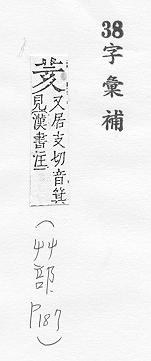 38字彙補
荄
又居支切音箕
見漢書注
(艸部P187)